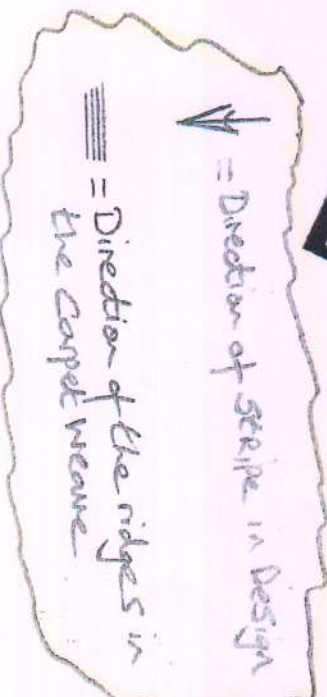 = Direction of Stripe in Design
= Direction of the ridges in
the Carpet weave